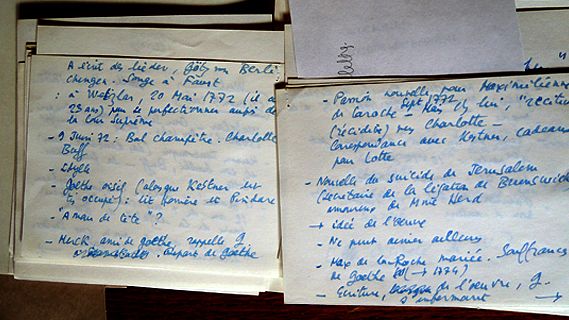 A écrit des lieder, Götz von Berli-
chingen. Songe à Faust
: à Wetzlar, 20 Mai 1772 (il a
23 ans) pour se perfectionner auprès de
la Cour Suprême
- 9 Juin 72 : Bal champêtre. Charlotte
Buff
- Idylle
- Goethe oisif (alors que Kestner est
très occupé) : lit Homère et Pindare
- "A man de tête" ?
- Merck, ami de Goethe, rappelle g
Départ de Goethe
- Passion nouvelle pour Maximilienne
de Laroche - Sept 1772 Mais
vers Charlotte -
Correspondance avec Kestner, cadeaux
pour Lotte
- Nouvelle du suicide de Jerusalem
(secrétaire de la légation de Brunswick
amoureux de Mme Herd
→ idée de l'œuvre
- Ne peut aimer ailleurs
- Max de La Roche mariée. Souffrances
de Goethe (→ 1774)
- Ecriture, de l'œuvre, g.
s'enfermant →